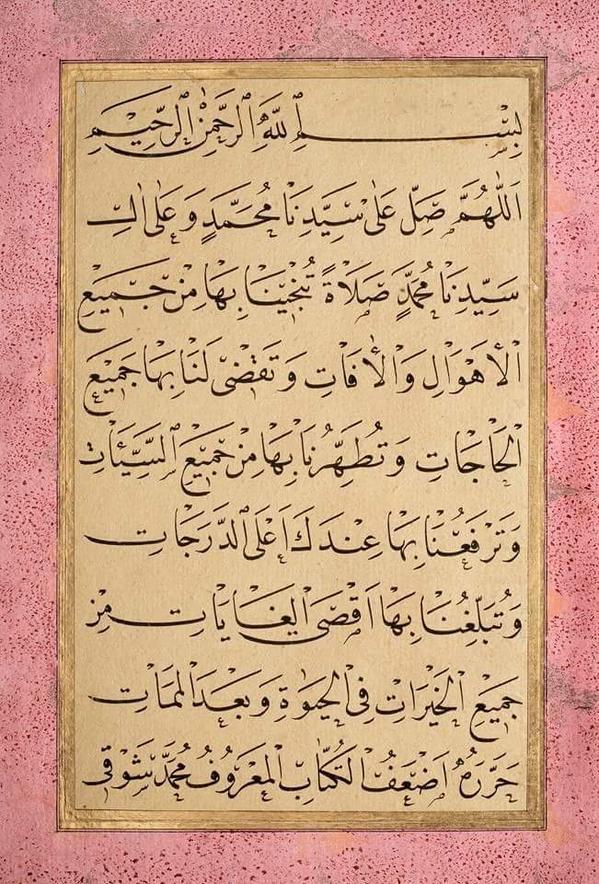 بِسْمِ اللهِ الرَّحْمٰنِ الرَّحِيمِ
اَللّٰهُمَّ صَلِّ عَلٰى سَيِّدِنَا مُحَمَّدٍ وَعَلٰى اٰلِ
سَيِّدِنَا مُحَمَّدٍ صَلَاةً تُنْجِينَا بِهَا مِنْ جَمِيعِ
الْأَهْوَالِ وَالْاٰفَاتِ وَتَقْضِى لَنَا بِهَا جَمِيعَ
الْحَاجَاتِ وَتُطَهِّرُنَا بِهَا مِنْ جَمِيعِ السَّيِّئَاتِ
وَتَرْفَعُنَا بِهَا عِنْدَكَ اَعْلَى الدَّرَجَاتِ
وَتُبَلِّغُنَا بِهَا اَقْصَى الْغَايَاتِ مِنْ
جَمِيعِ الْخَيْرَاتِ فِى الْحَيٰوةِ وَبَعْدَ الْمَمَاتِ
حَرَّرَهُ اَضْعَفُ الْكُتَّابِ الْمَعْرُوفُ مُحَمَّد شَوْقِى